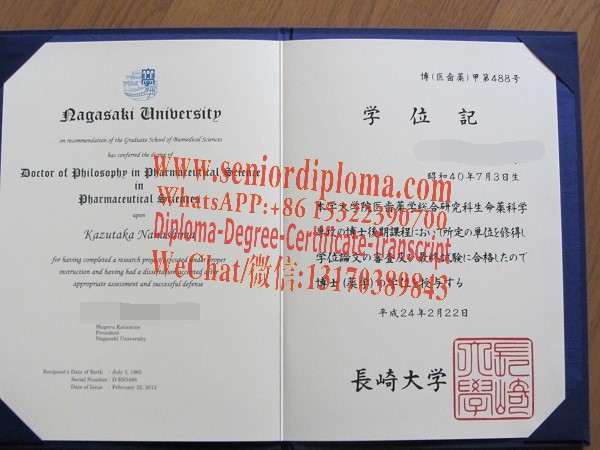 Nagasaki University
on recommendation of the Graduate School of Biomedical Sciences
has conferred the degree of
Doctor of Philosophy in Pharmaceutical Science
in
Pharmaceutical Sciences
upon
Kazutaka
for having completed a research project
instruction and having had a dissertation accepted after
appropriate assessment and successful defense
Shigeru Katamine
President
Nagasaki University
Recipient's Date of Birth : July 3, 1965
Serial Number :
Date of Issue : February 22, 2012
博(医歯薬)甲第488号
学位記
昭和40年7月3日生
本学大学院医歯薬学総合研究科生命薬科学
専攻の博士後期課程において所定の単位を修得し
学位論文の審査及び最終試験に合格したので
博士(薬学)の学位を授与する
平成24年2月22日
長崎大学
www.seniordiploma.com
WhatsAPP:+86 15322390700
Diploma-Degree-Certificate-Transcript
WeChat/微信:13170389843